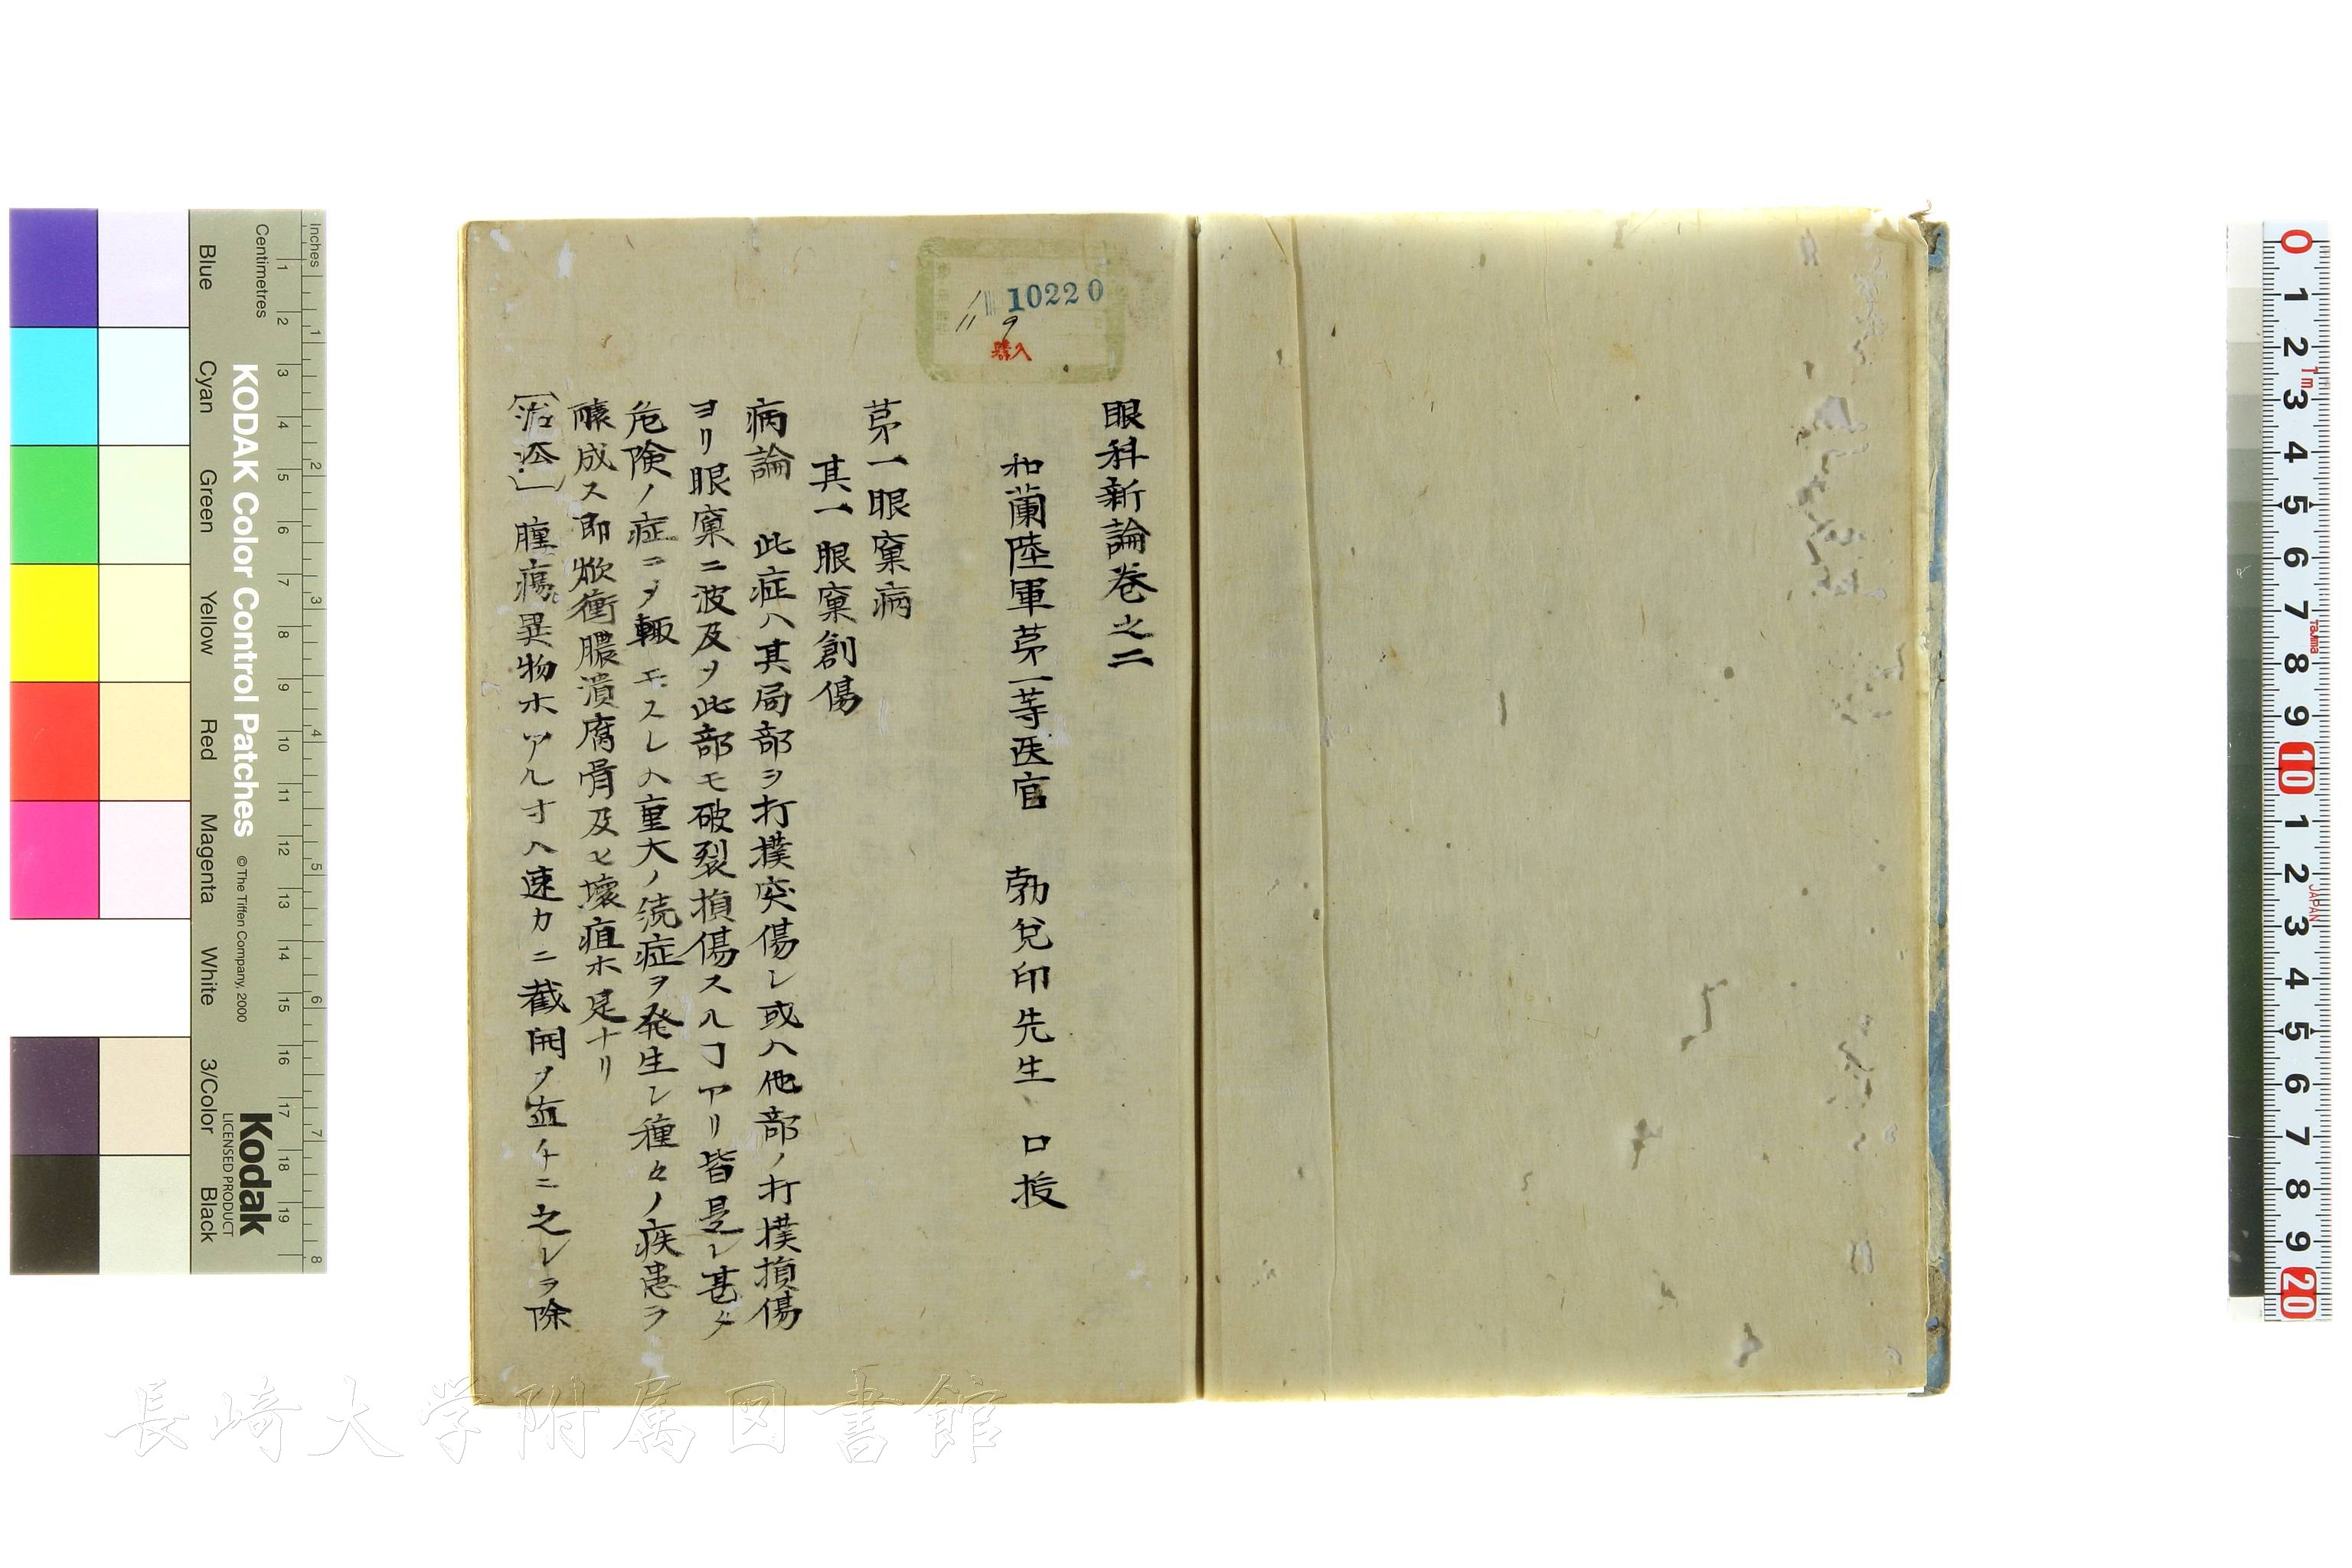 眼科新論巻之二
和蘭陸軍苐一等医官 勃兌印先生 口授
苐一眼窠病
其一眼窠創傷
病論 此症ハ其局部ヲ打撲突傷シ或ハ他部ノ打撲損傷
ヨリ眼窠ニ波及ヲ此部モ破裂損傷スルヿアリ皆是レ甚タ
危険ノ症ニヲ輙モスレハ重大ノ続症ヲ発生シ種々ノ疾患ヲ
醸成ス即焮衝膿潰腐骨及ヒ壊疽ホ是ナリ
〔治法〕 腫瘍異物ホアルオハ速カニ截開ヲ直チニ之レヲ除
10220
11
9
購入
長崎大学附属図書館
KODAK Color Control Patches
© The Tiffen Company, 2000
Kodak
LICENSED PRODUCT
Inches
1 2 3 4 5 6 7 8
Centimetres
1 2 3 4 5 6 7 8 9 10 11 12 13 14 15 16 17 18 19
Blue
Cyan
Green
Yellow
Red
Magenta
White
3/Color
Black
0 1 2 3 4 5 6 7 8 9 10 1 2 3 4 5 6 7 8 9 20
1m
TaJIma
JAPAN